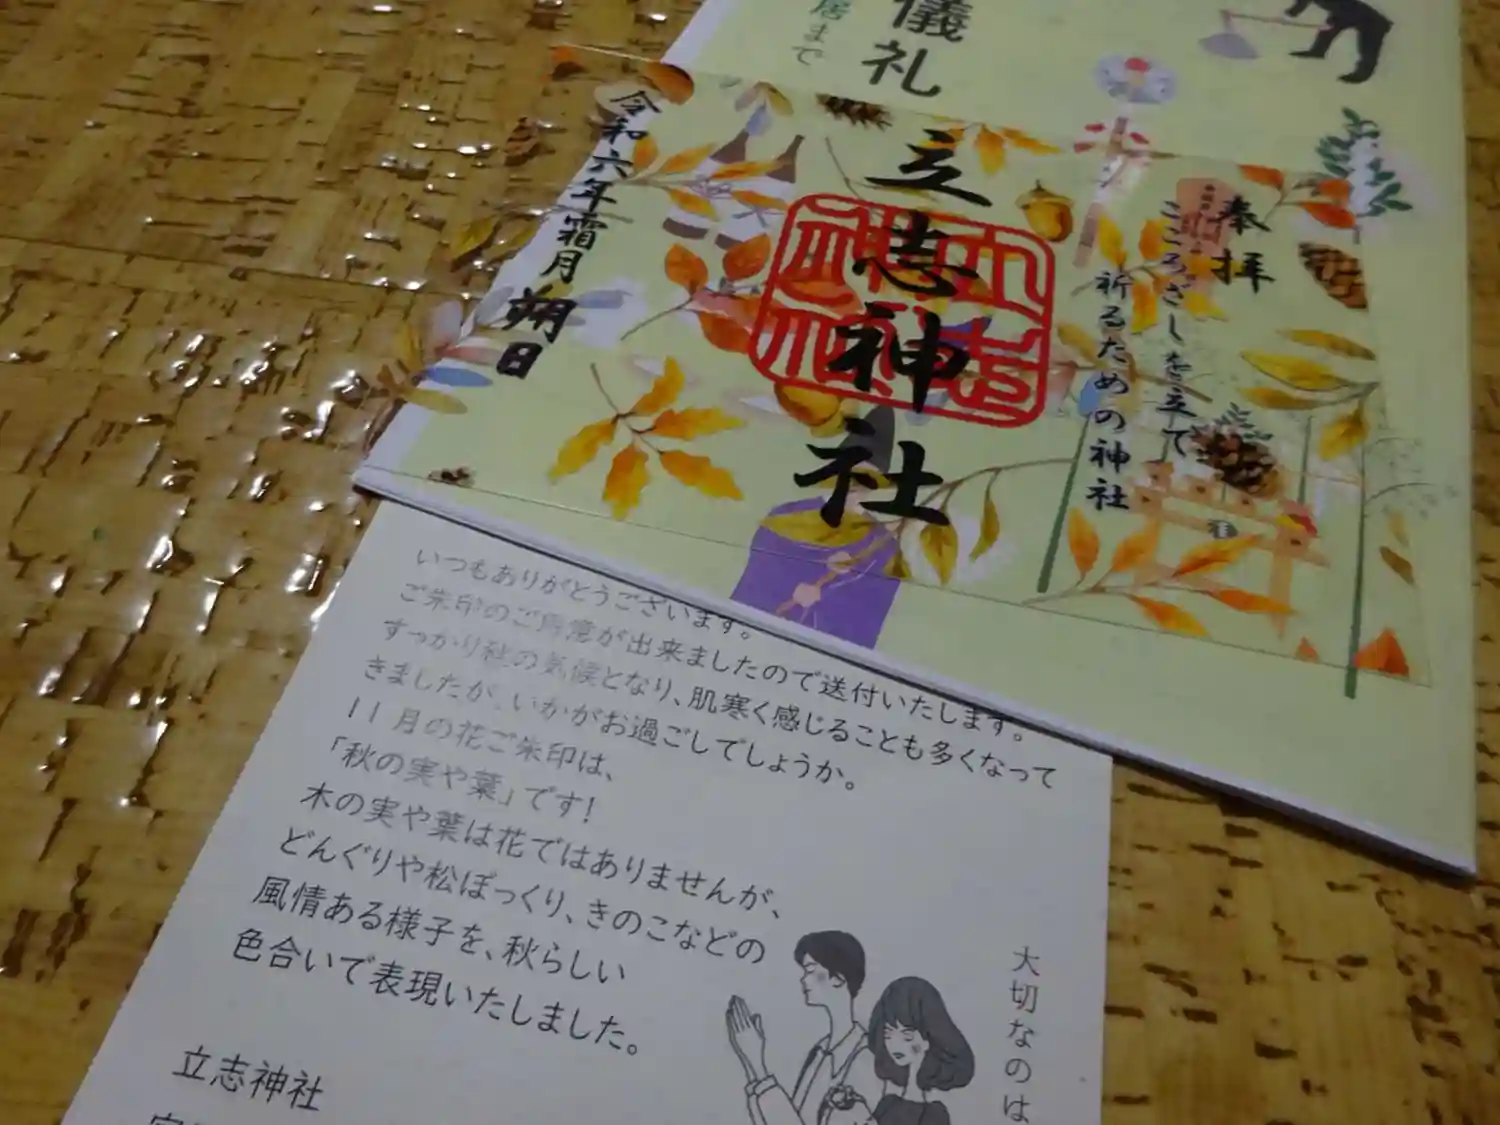 儀礼
居まで
奉拝
こころざしを立て
祈るための神社
立志神社
令和六年霜月朔日
いつもありがとうございます。
ご朱印のご用意が出来ましたので送付いたします。
すっかり秋の気候となり、肌寒く感じることも多くなって
きましたが、いかがお過ごしでしょうか。
11月の花ご朱印は、
「秋の実や葉」です!
木の実や葉は花ではありませんが、
どんぐりや松ぼっくり、きのこなどの
風情ある様子を、秋らしい
色合いで表現いたしました。
立志神社
大切なのは